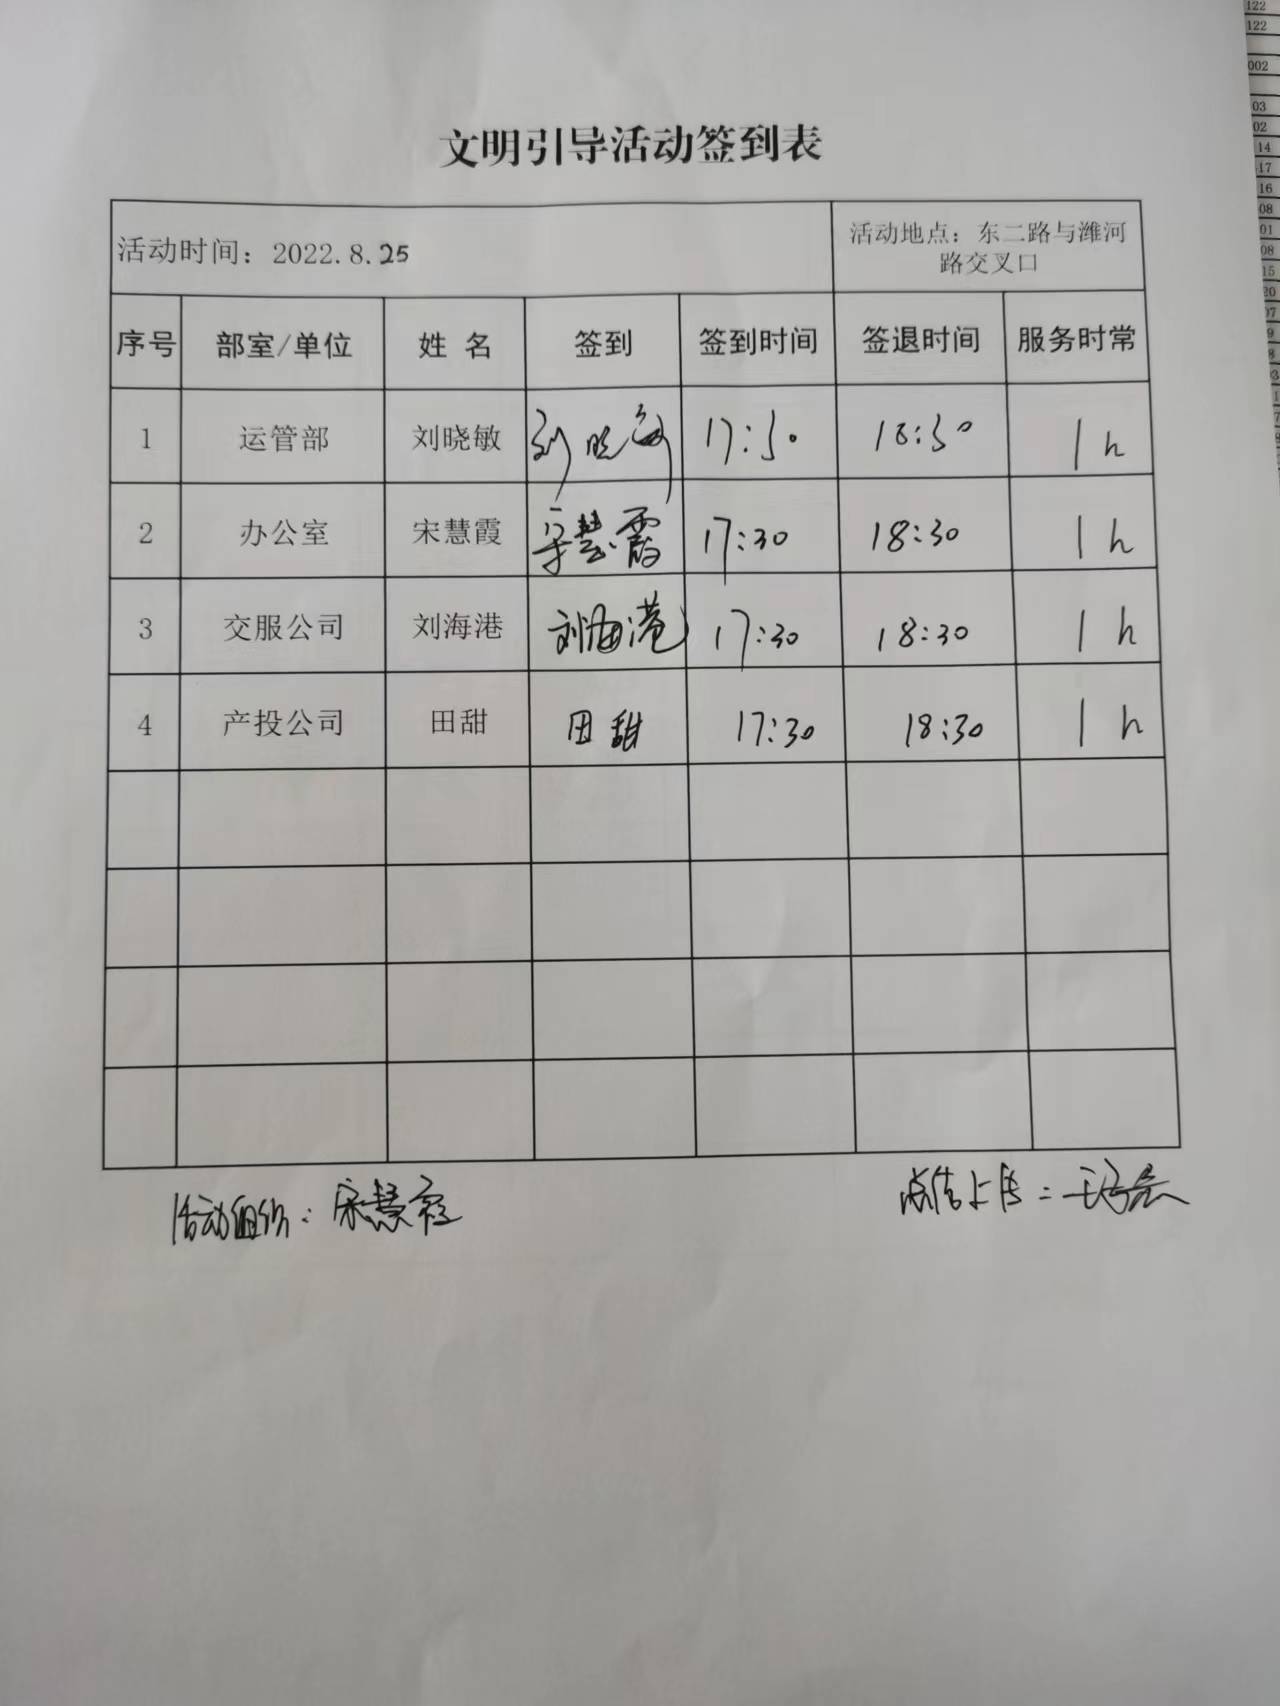 文明引导活动签到表
活动时间：2022.8.25
活动地点：东二路与潍河
路交叉口
序号 部室/单位 姓 名 签到 签到时间 签退时间 服务时常
1 运管部 刘晓敏 刘晓敏 17:30 18:30 1h
2 办公室 宋慧霞 宋慧霞 17:30 18:30 1h
3 交服公司 刘海港 刘海港 17:30 18:30 1h
4 产投公司 田甜 田甜 17:30 18:30 1h
活动组织：宋慧霞
上传：
122
122
002
03
02
14
17
16
08
01
08
15
20